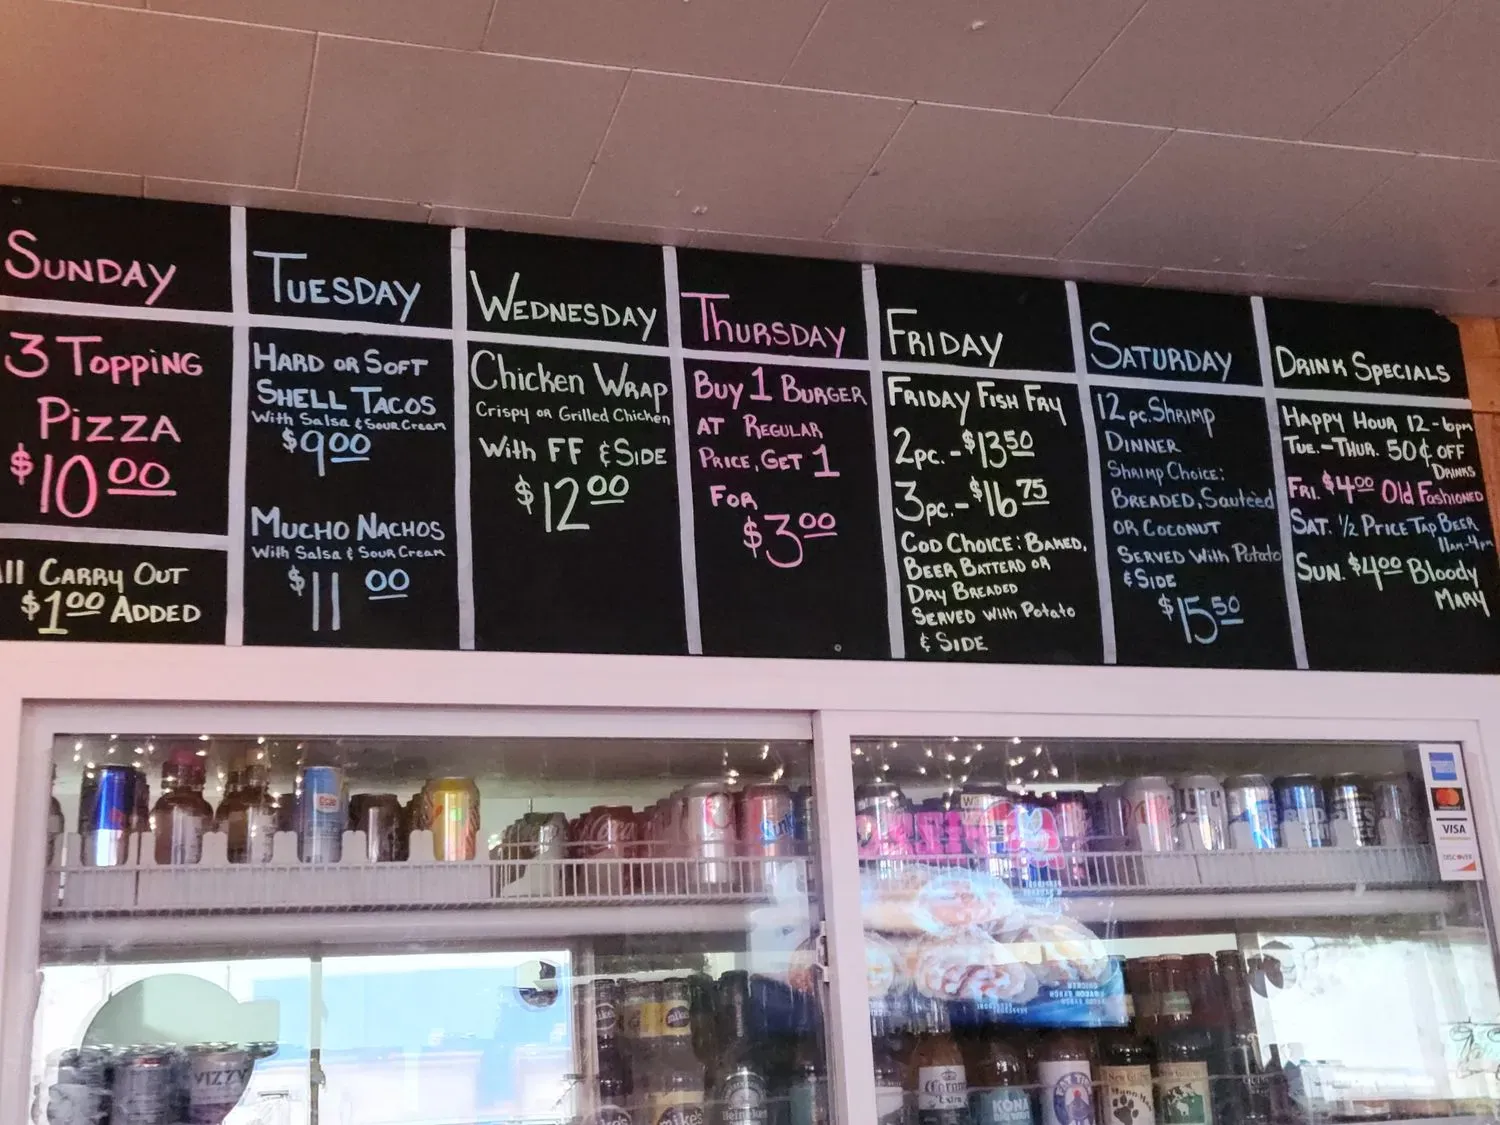 SUNDAY
3 TOPPING
PIZZA
$10.00
CARRY OUT
$1.00 ADDED
TUESDAY
HARD OR SOFT
SHELL TACOS
With Salsa & Sour Cream
$9.00
MUCHO NACHOS
With Salsa & Sour Cream
$11.00
WEDNESDAY
Chicken WRAP
Crispy or Grilled Chicken
With FF & SIDE
$12.00
THURSDAY
BUY 1 BURGER
AT REGULAR
PRICE, GET 1
FOR
$3.00
FRIDAY
FRIDAY FISH FRY
2pc. - $13.50
3pc. - $16.75
COD CHOICE: BAKED,
BEER BATTERD OR
DRY BREADED
SERVED With POTATO
& SIDE
SATURDAY
12 pc. SHRIMP
DINNER
SHRIMP CHOICE:
BREADED, Sauteèd
OR COCONUT
SERVED With POTATO
& SIDE
$15.50
DRINK SPECIALS
HAPPY HOUR 12-6pm
TUE. - THUR. 50¢ OFF
DRINKS
FRI. $4.00 Old FASHIONED
SAT. 1/2 PRICE TAP BEER
11am-4pm
SUN. $4.00 Bloody
MARY
VISA
DISCOVER
VIZZY
mike's
Heineken
Corona
Extra
KONA